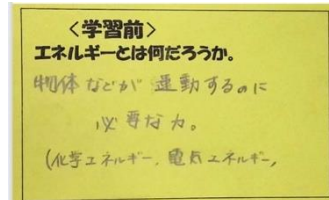 ＜学習前＞
エネルギーとは何だろうか。
物体などが運動するのに
必要な力。
(化学エネルギー, 電気エネルギー,